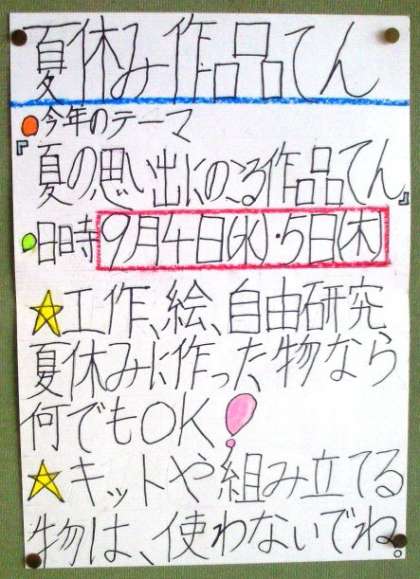 夏休み作品てん
今年のテーマ
『夏の思い出にのこる作品てん』
日時9月4日(水)・5日(木)
工作、絵、自由研究
夏休みに作った物なら
何でもOK!
キットや組み立てる
物は、使わないでね。